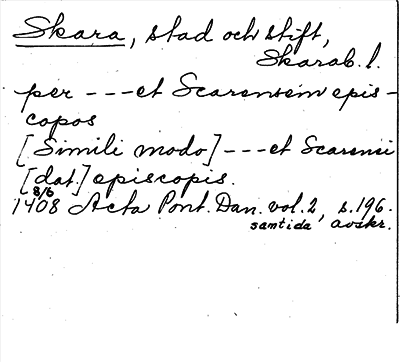 Skara, stad och stift,
Skarab. l.
per - - - et Scarensem epis-
copos
[Simili modo] - - - et Scarensi
[dat.] episcopis.
8/6
1408 Acta Pont. Dan. vol. 2, s. 196.
samtida avskr.